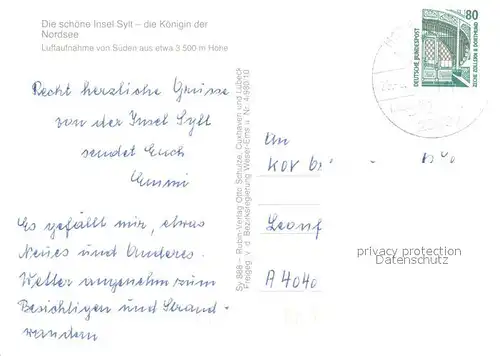 Die schöne Insel Sylt – die Königin der
Nordsee
Luftaufnahme von Süden aus etwa 3 500 m Höhe
80
DEUTSCHE BUNDESPOST
ZECHE ZOLLERN II DORTMUND
Recht herzliche Grüsse
von der Insel Sylt
sendet Euch
Emmi
Es gefällt mir, etwas
Neues und Anderes.
Wetter angenehm zum
Besichtigen und Strand-
wandern
Sy 888 – Rubin-Verlag Otto Schulze, Cuxhaven und Lübeck
Freigeg. v. d. Bezirksregierung Weser-Ems u. Nr. 4/980/10
An
Leonf
A 4040
privacy protection
Datenschutz